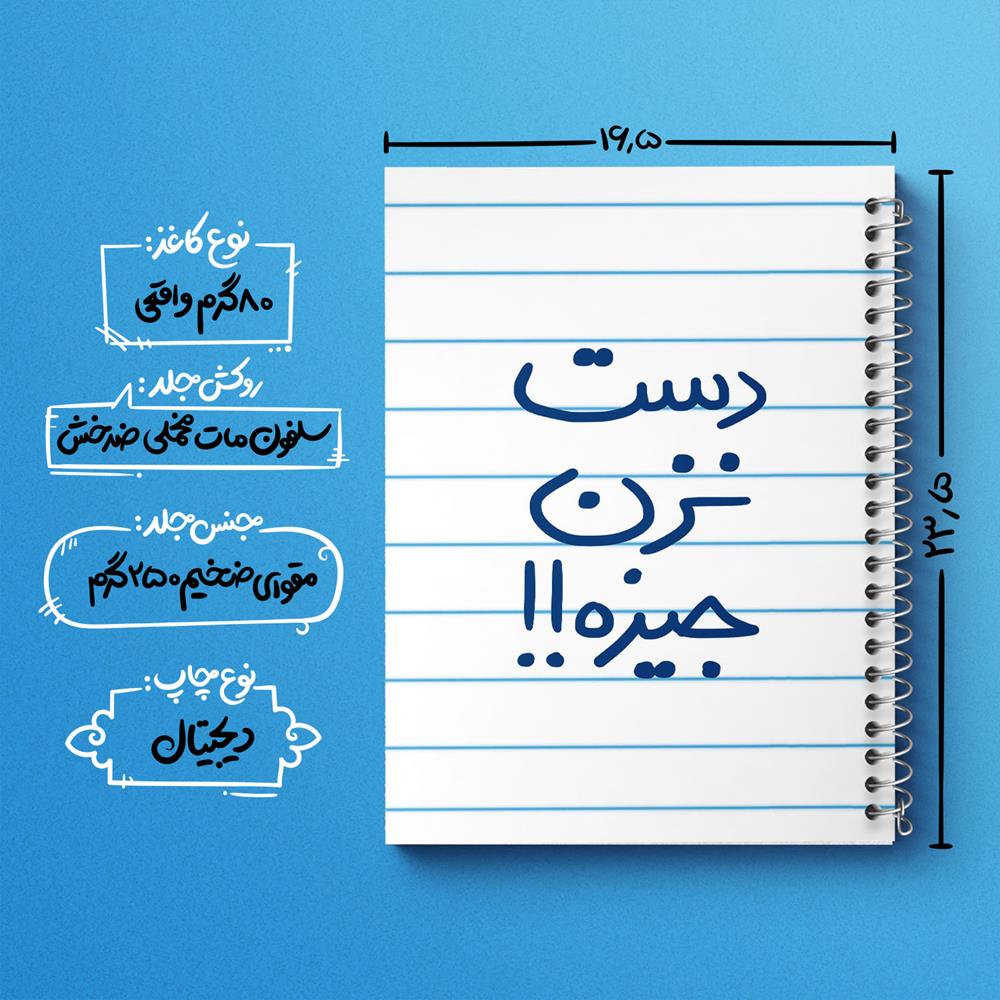 ۱۶,۵
۲۳,۵
دست
نزن
جیزه!!
نوع کاغذ:
۸۰گرم واقعی
روکش جلد:
سلفون مات مخملی ضدخش
جنس جلد:
مقوای ضخیم ۲۵۰گرم
نوع چاپ:
دیجیتال